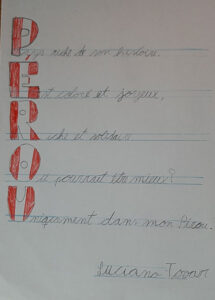 Pays riche de son histoire.
Est coloré et joyeux,
Riche et solitaire
Où pourrait être mieux?
Uniquement dans mon Pérou.
Luciana Tovar